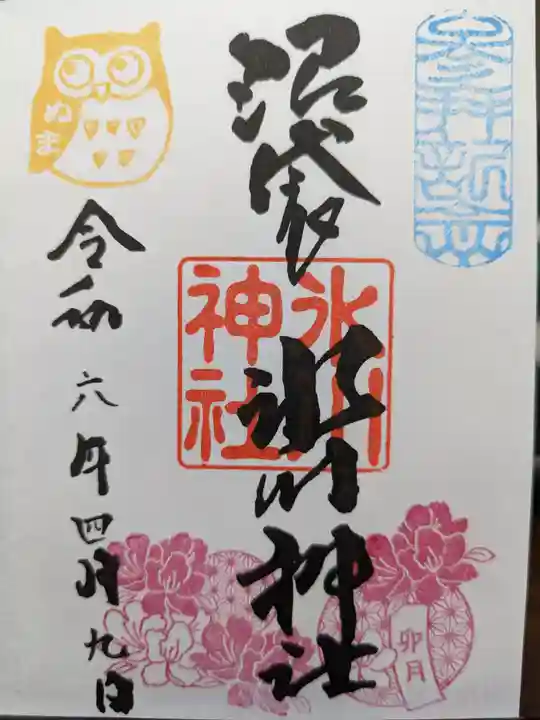 参拝記念
沼袋
氷川神社
氷川
神社
卯月
ぬま
令和六年四月九日